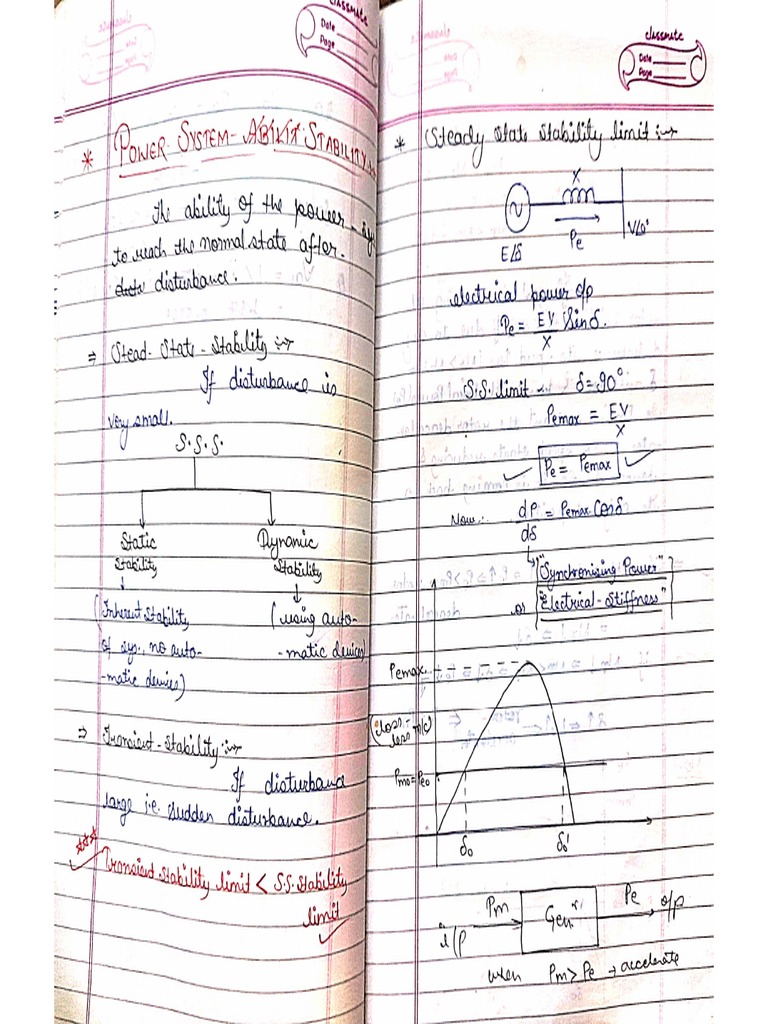 classmate
Date
Page
* POWER SYSTEM- STABILITY
The ability of the power - sy
to reach the normal state after
disturbance.
⇒ Stead- State - Stability :→
If disturbance is
very small.
S.S.S.
Static
Stability
Dynamic
Stability
(Inherent stability
of sys., no auto-
-matic devices)
(using auto-
-matic devices)
⇒ Transient - Stability :→
If disturbance
large i.e. sudden disturbance.
*** Transient stability limit < S.S. Stability
limit
classmate
Date
Page
* Steady State Stability limit :→
X
Pe
E∠δ
V∠0°
electrical power o/p
Pe = EV/X Sinδ.
S.S. limit δ = 90°
Pemax = EV/X
✓ Pe = Pemax ✓
Now :- dP/dδ = Pemax Cosδ
"Synchronising Power"
or "Electrical - Stiffness"
Pemax
(loss-
less m/c)
Pmo = Peo
δo
δo'
i/p
Pm
Genr
Pe
o/p
when Pm > Pe → accelerate